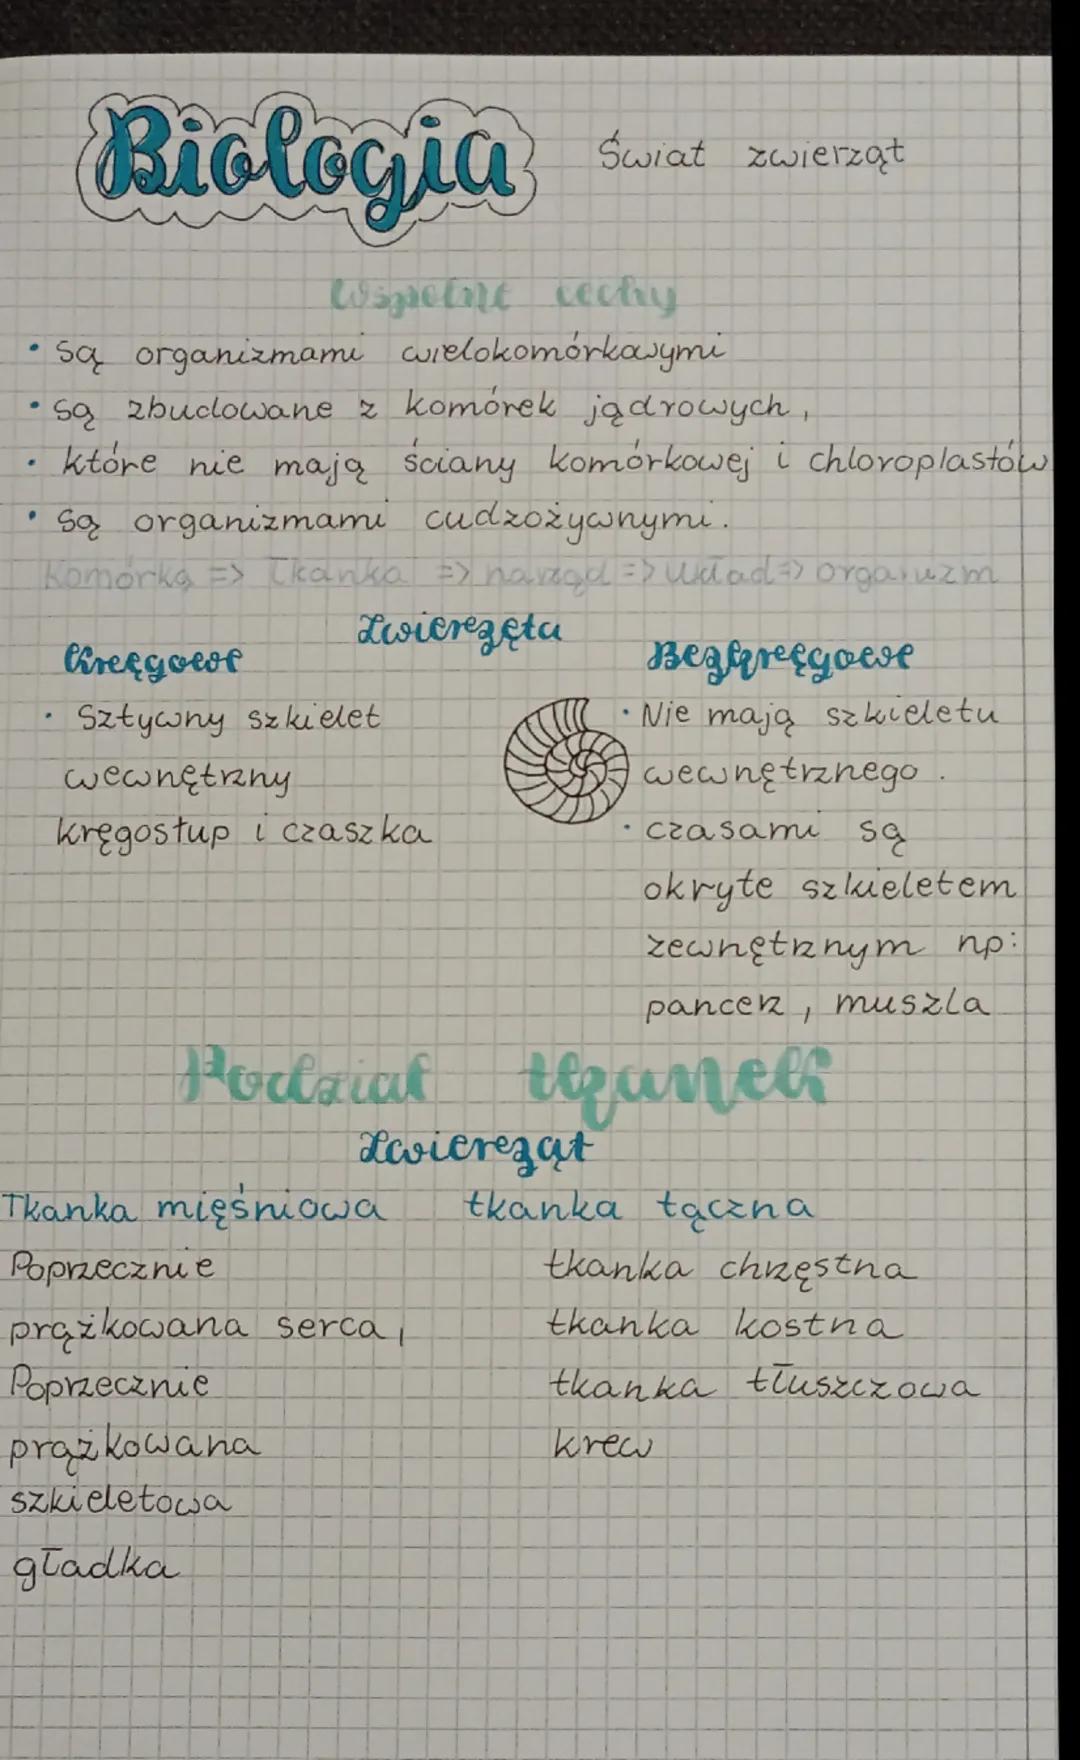 Biologia
Świat zwierząt
Wspólne cechy
• są organizmami wielokomórkowymi
• są zbudowane z komórek jądrowych,
• które nie mają ściany komórkowej i chloroplastów
• są organizmami cudzożywnymi.
Komórka => tkanka => narząd => układ => organizm
Zwierzęta
Kręgowe
• Sztywny szkielet
wewnętrzny
kręgosłup i czaszka
Bezkręgowe
• Nie mają szkieletu
wewnętrznego.
• czasami są
okryte szkieletem
zewnętrznym np:
pancerz, muszla
Podział tkanek
Zwierząt
Tkanka mięśniowa
Poprzecznie
prążkowana serca,
Poprzecznie
prążkowana
szkieletowa
gładka
tkanka łączna
tkanka chrzęstna
tkanka kostna
tkanka tłuszczowa
krew